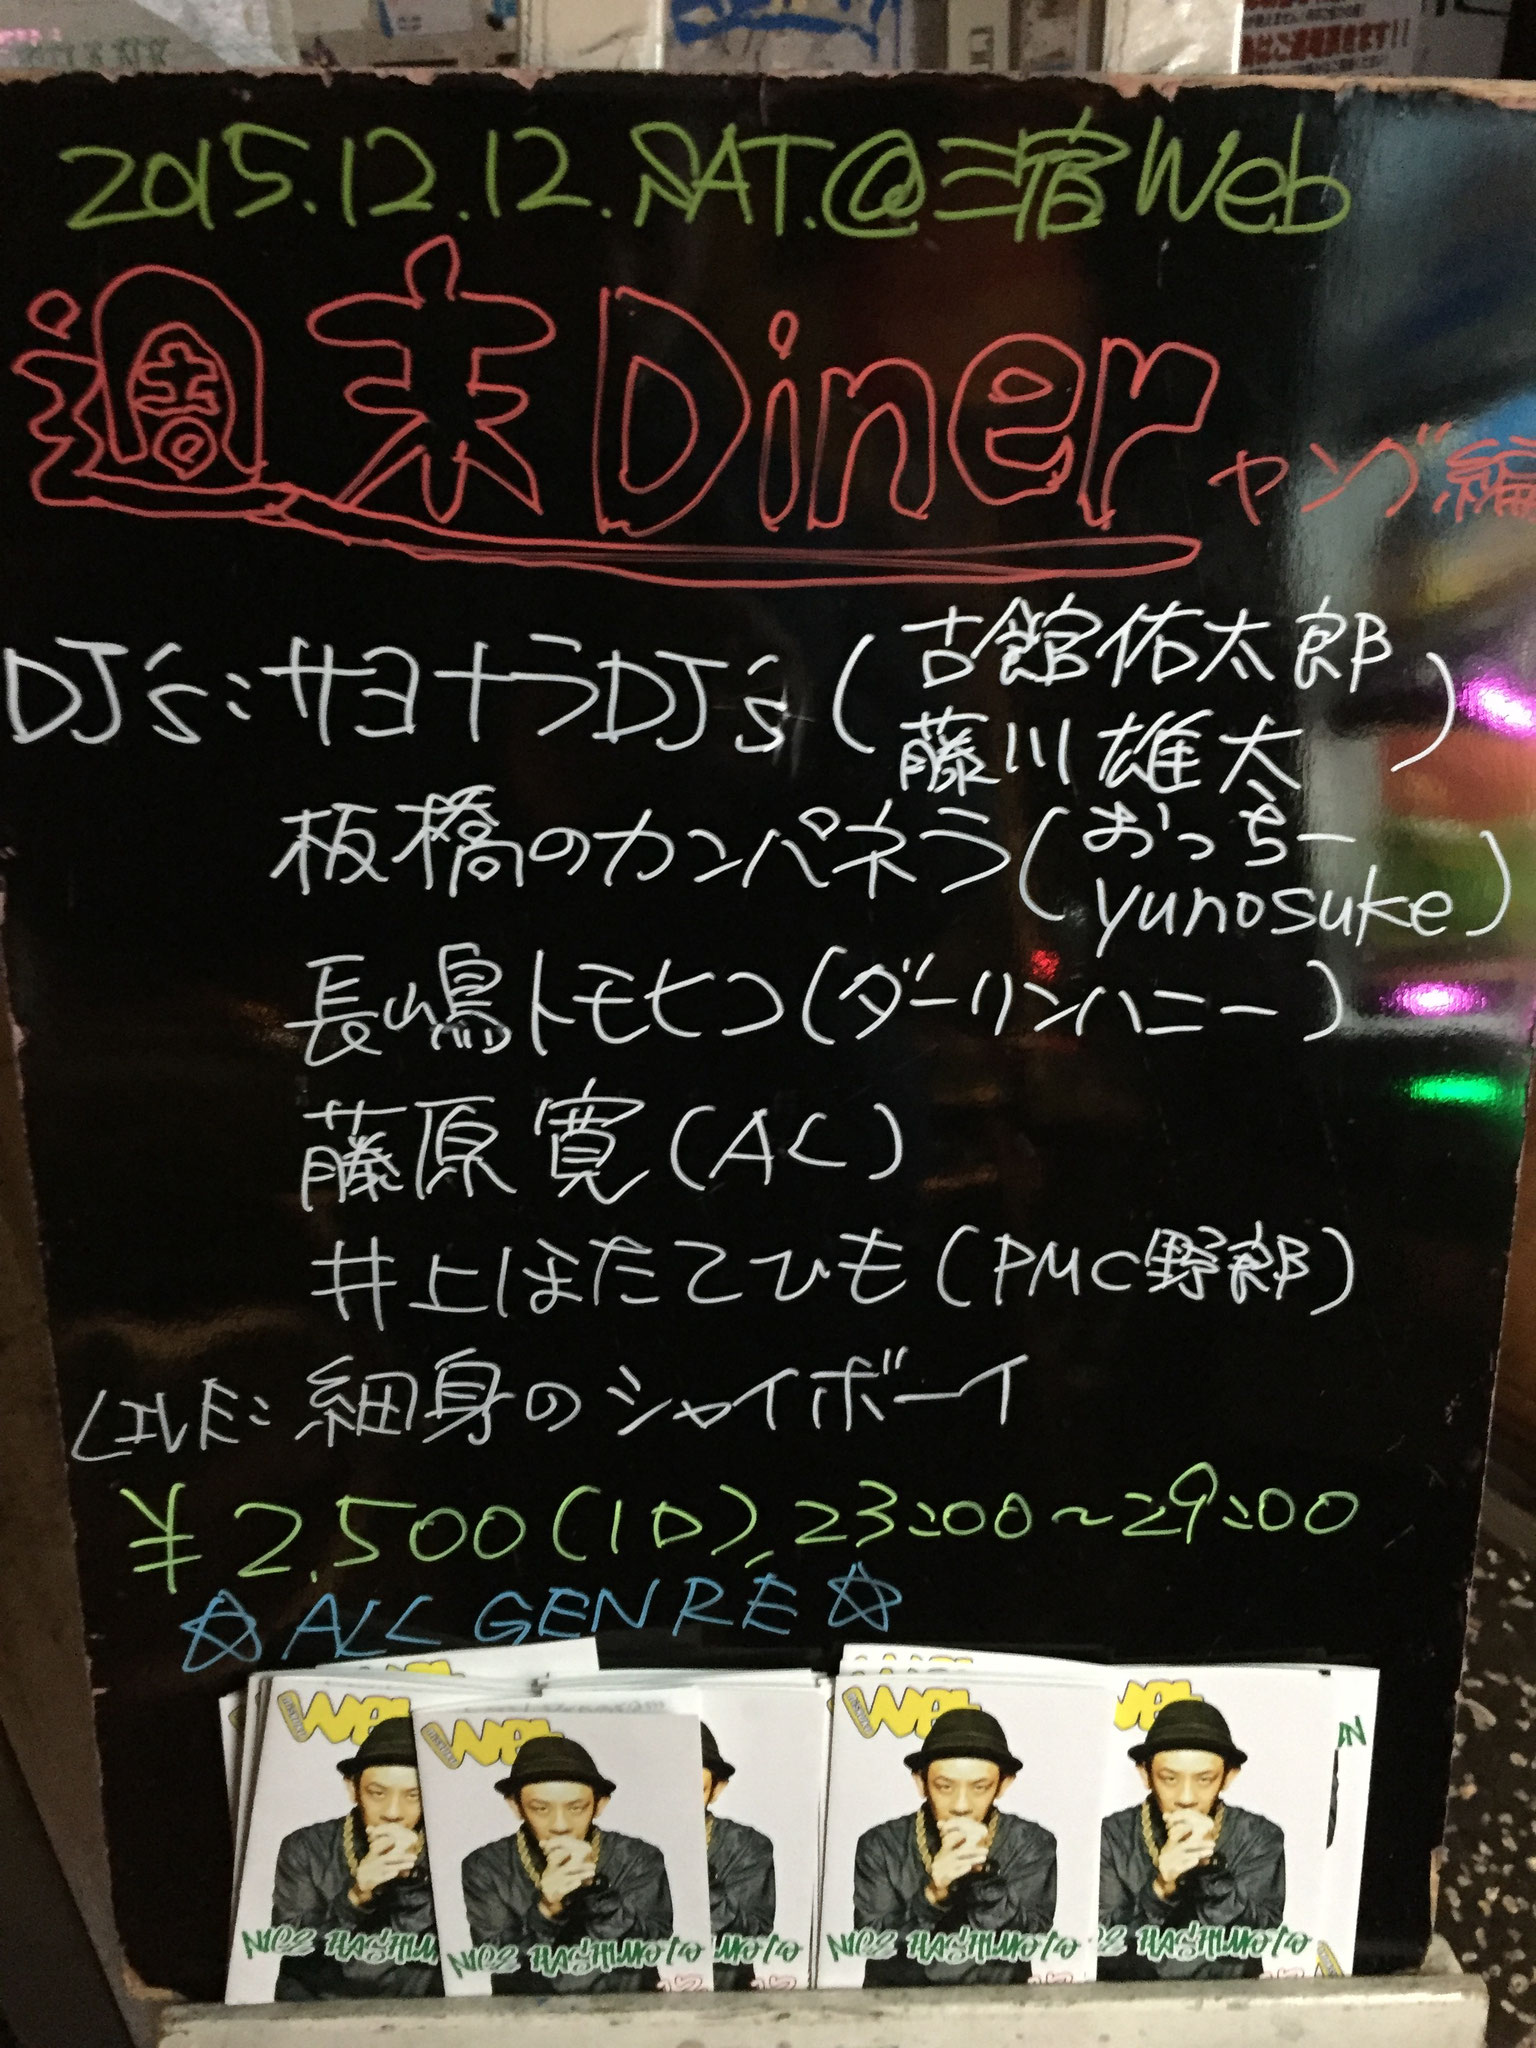 2015.12.12.SAT.@三宿Web
週末Diner ヤング編
DJ's:サヨナラDJ's(古舘佑太郎
藤川雄太)
板橋のカンパネラ(おっちー
yunosuke)
長嶋トモヒコ(ダーリンハニー)
藤原寛(AL)
井上ほたてひも(PMC野郎)
LIVE:細身のシャイボーイ
¥2,500(1D), 23:00〜29:00
☆ALL GENRE☆
Web
Web
Web
Web
NICE HASHIM
NICE HASHIMOTO
IMOTO
NICE HASHIMOTO
HASHIMOTO